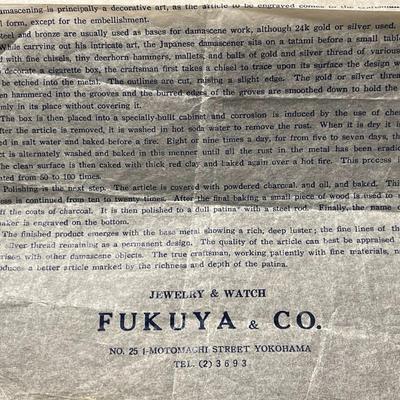 amascening is principally a decorative art, as the article to be engraved comes to the
l form, except for the embellishment.
teel and bronze usually used as bases for damascene work, although 24k gold or silver used.
While carrying out his intricate art, the Japanese damascener sits on a tatami before a small table
d with fine chisels, tiny deerhorn hammers, mallets, and balls of gold and silver thread of various
o decorate a cigarette box, the craftsman first takes a chisel to trace upon its surface the design w
be etched into the metal. The outlines are cut, raising a slight edge. The gold or silver thread
en hammered into the grooves and the burred edges of the groves are smoothed down to hold the
mly in its place without covering it.
The box is then placed into a specially-built cabinet and corrosion is induced by the use of chem
fter the article is removed, it is washed in hot soda water to remove the rust. When it is dry it is
ed in salt water and baked before a fire. Eight or nine times a day, for from five to seven days, the
ct is alternately washed and baked in this manner until all the rust in the metal has been eradic
he clean surface is then caked with thick red clay and baked again over a hot fire. This process
ated from 50 to 100 times.
Polishing is the next step. The article is covered with powdered charcoal, and oil, and baked. This
cess is continued from ten to twenty times. After the final baking a small piece of wood is used to
off the coats of charcoal. It is then polished to a dull patina with a steel rod. Finally, the name
maker is engraved on the bottom.
The finished product emerges with the base metal showing a rich, deep luster; the fine lines of th
silver thread remaining as a permanent design. The quality of the article can best be appraised
rison with other damascene objects. The true craftsman, working patiently with fine materials,
oduces a better article marked by the richness and depth of the patina.
JEWELRY & WATCH
FUKUYA & CO.
NO. 25 1-MOTOMACHI STREET YOKOHAMA
TEL. (2) 3693